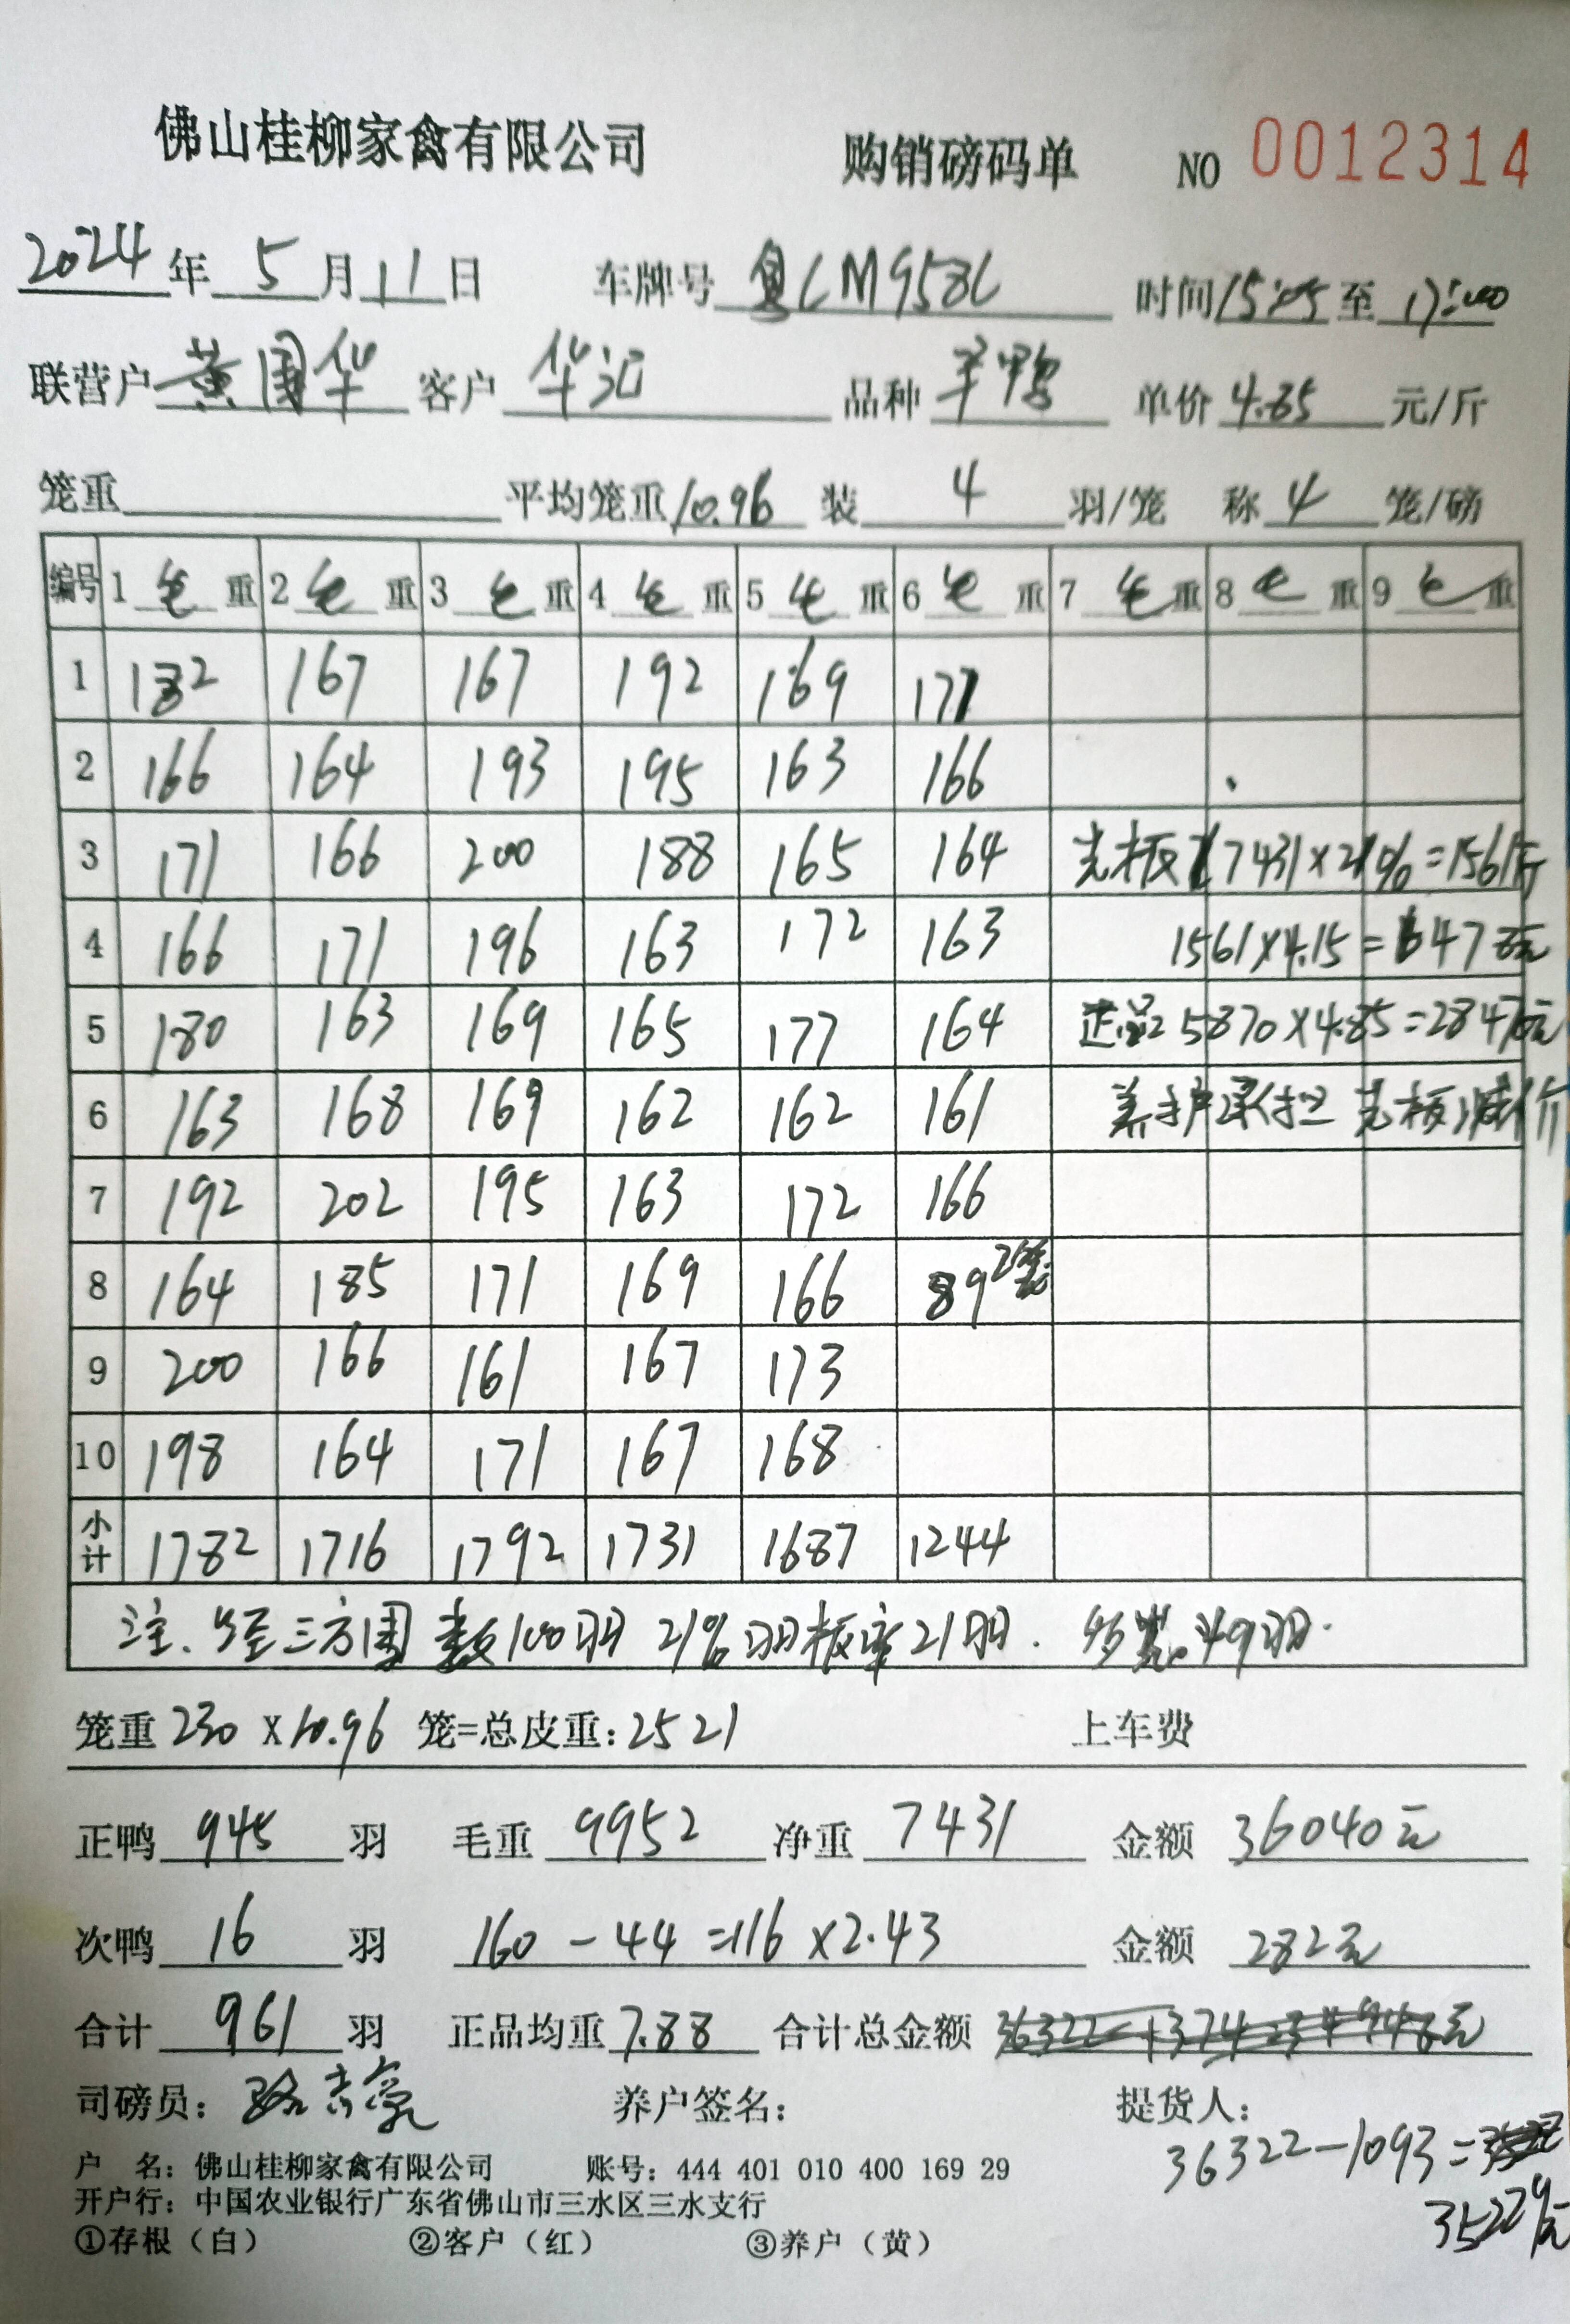 佛山桂柳家禽有限公司 购销磅码单 NO 0012314
2024年5月11日 车牌号 粤LM958L 时间15:25至17:00
联营户 黄国华 客户 华记 品种 羊鸭 单价 4.85 元/斤
笼重 平均笼重10.96 装 4 羽/笼 称 4 笼/磅
编号 1 毛 重 2 毛 重 3 毛 重 4 毛 重 5 毛 重 6 毛 重 7 毛 重 8 毛 重 9 毛 重
1 182 167 167 192 169 171
2 166 164 193 195 163 166
3 171 166 200 188 165 164 光板 7431×21%=1561斤
4 166 171 196 163 172 163 1561×4.15=6478元
5 180 163 169 165 177 164 正品 5870×4.85=28470元
6 163 168 169 162 162 161 养护承担 光板减价
7 192 202 195 163 172 166
8 164 185 171 169 166 89 2笼
9 200 166 161 167 173
10 198 164 171 167 168
小计 1782 1716 1792 1731 1687 1244
注、 三方围 数100羽 21% 羽板率21羽. 49羽.
笼重 230 X 10.96 笼=总皮重:2521 上车费
正鸭 945 羽 毛重 9952 净重 7431 金额 36040元
次鸭 16 羽 160-44=116×2.43 金额 282元
合计 961 羽 正品均重 7.88 合计总金额
司磅员: 养户签名: 提货人:
36322-1093=
35229元
户 名:佛山桂柳家禽有限公司 账号:444 401 010 400 169 29
开户行:中国农业银行广东省佛山市三水区三水支行
①存根(白) ②客户(红) ③养户(黄)